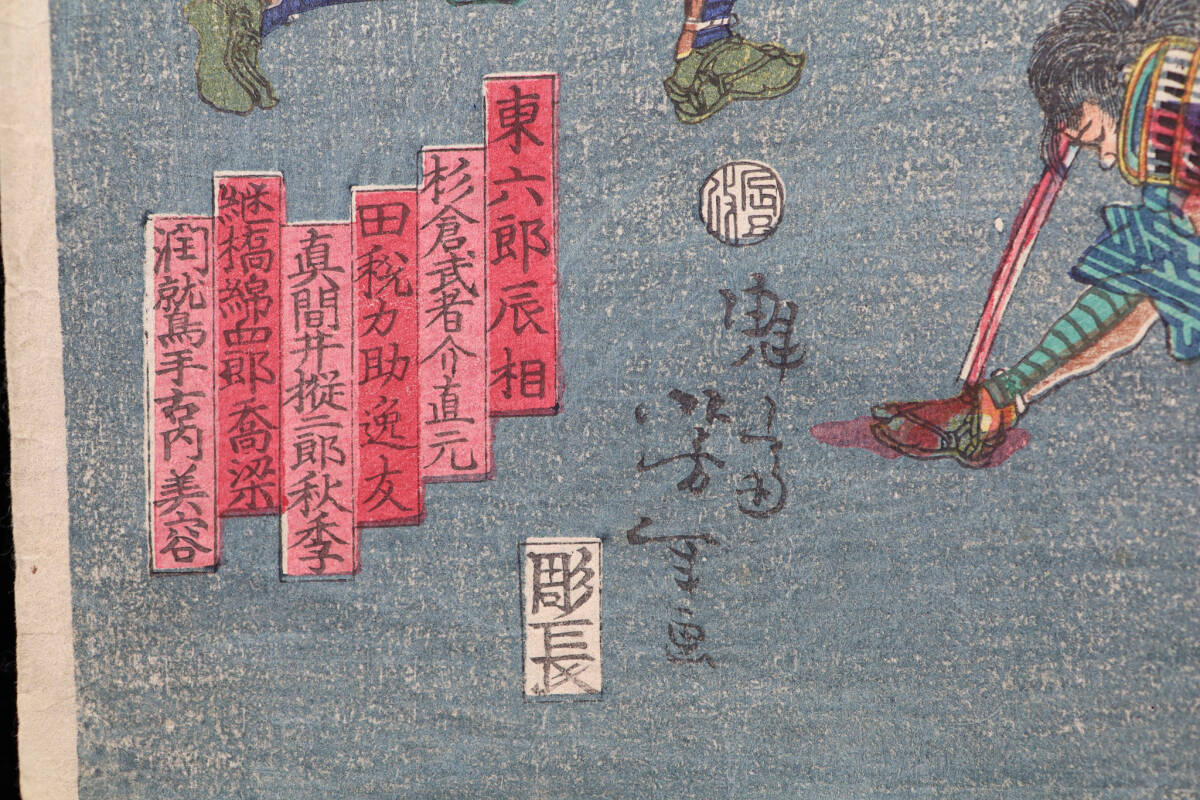 東六郎辰相
杉倉武者介直元
田税力助逸友
真間井樅二郎秋季
継橋綿四郎喬梁
潤就鳥手古内美容
芳年画
彫長